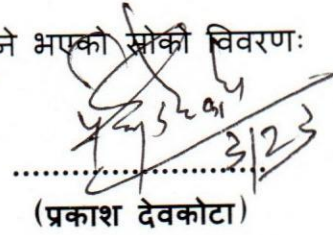 ने भएको स्रोको विवरणः
3/23
(प्रकाश देवकोटा)